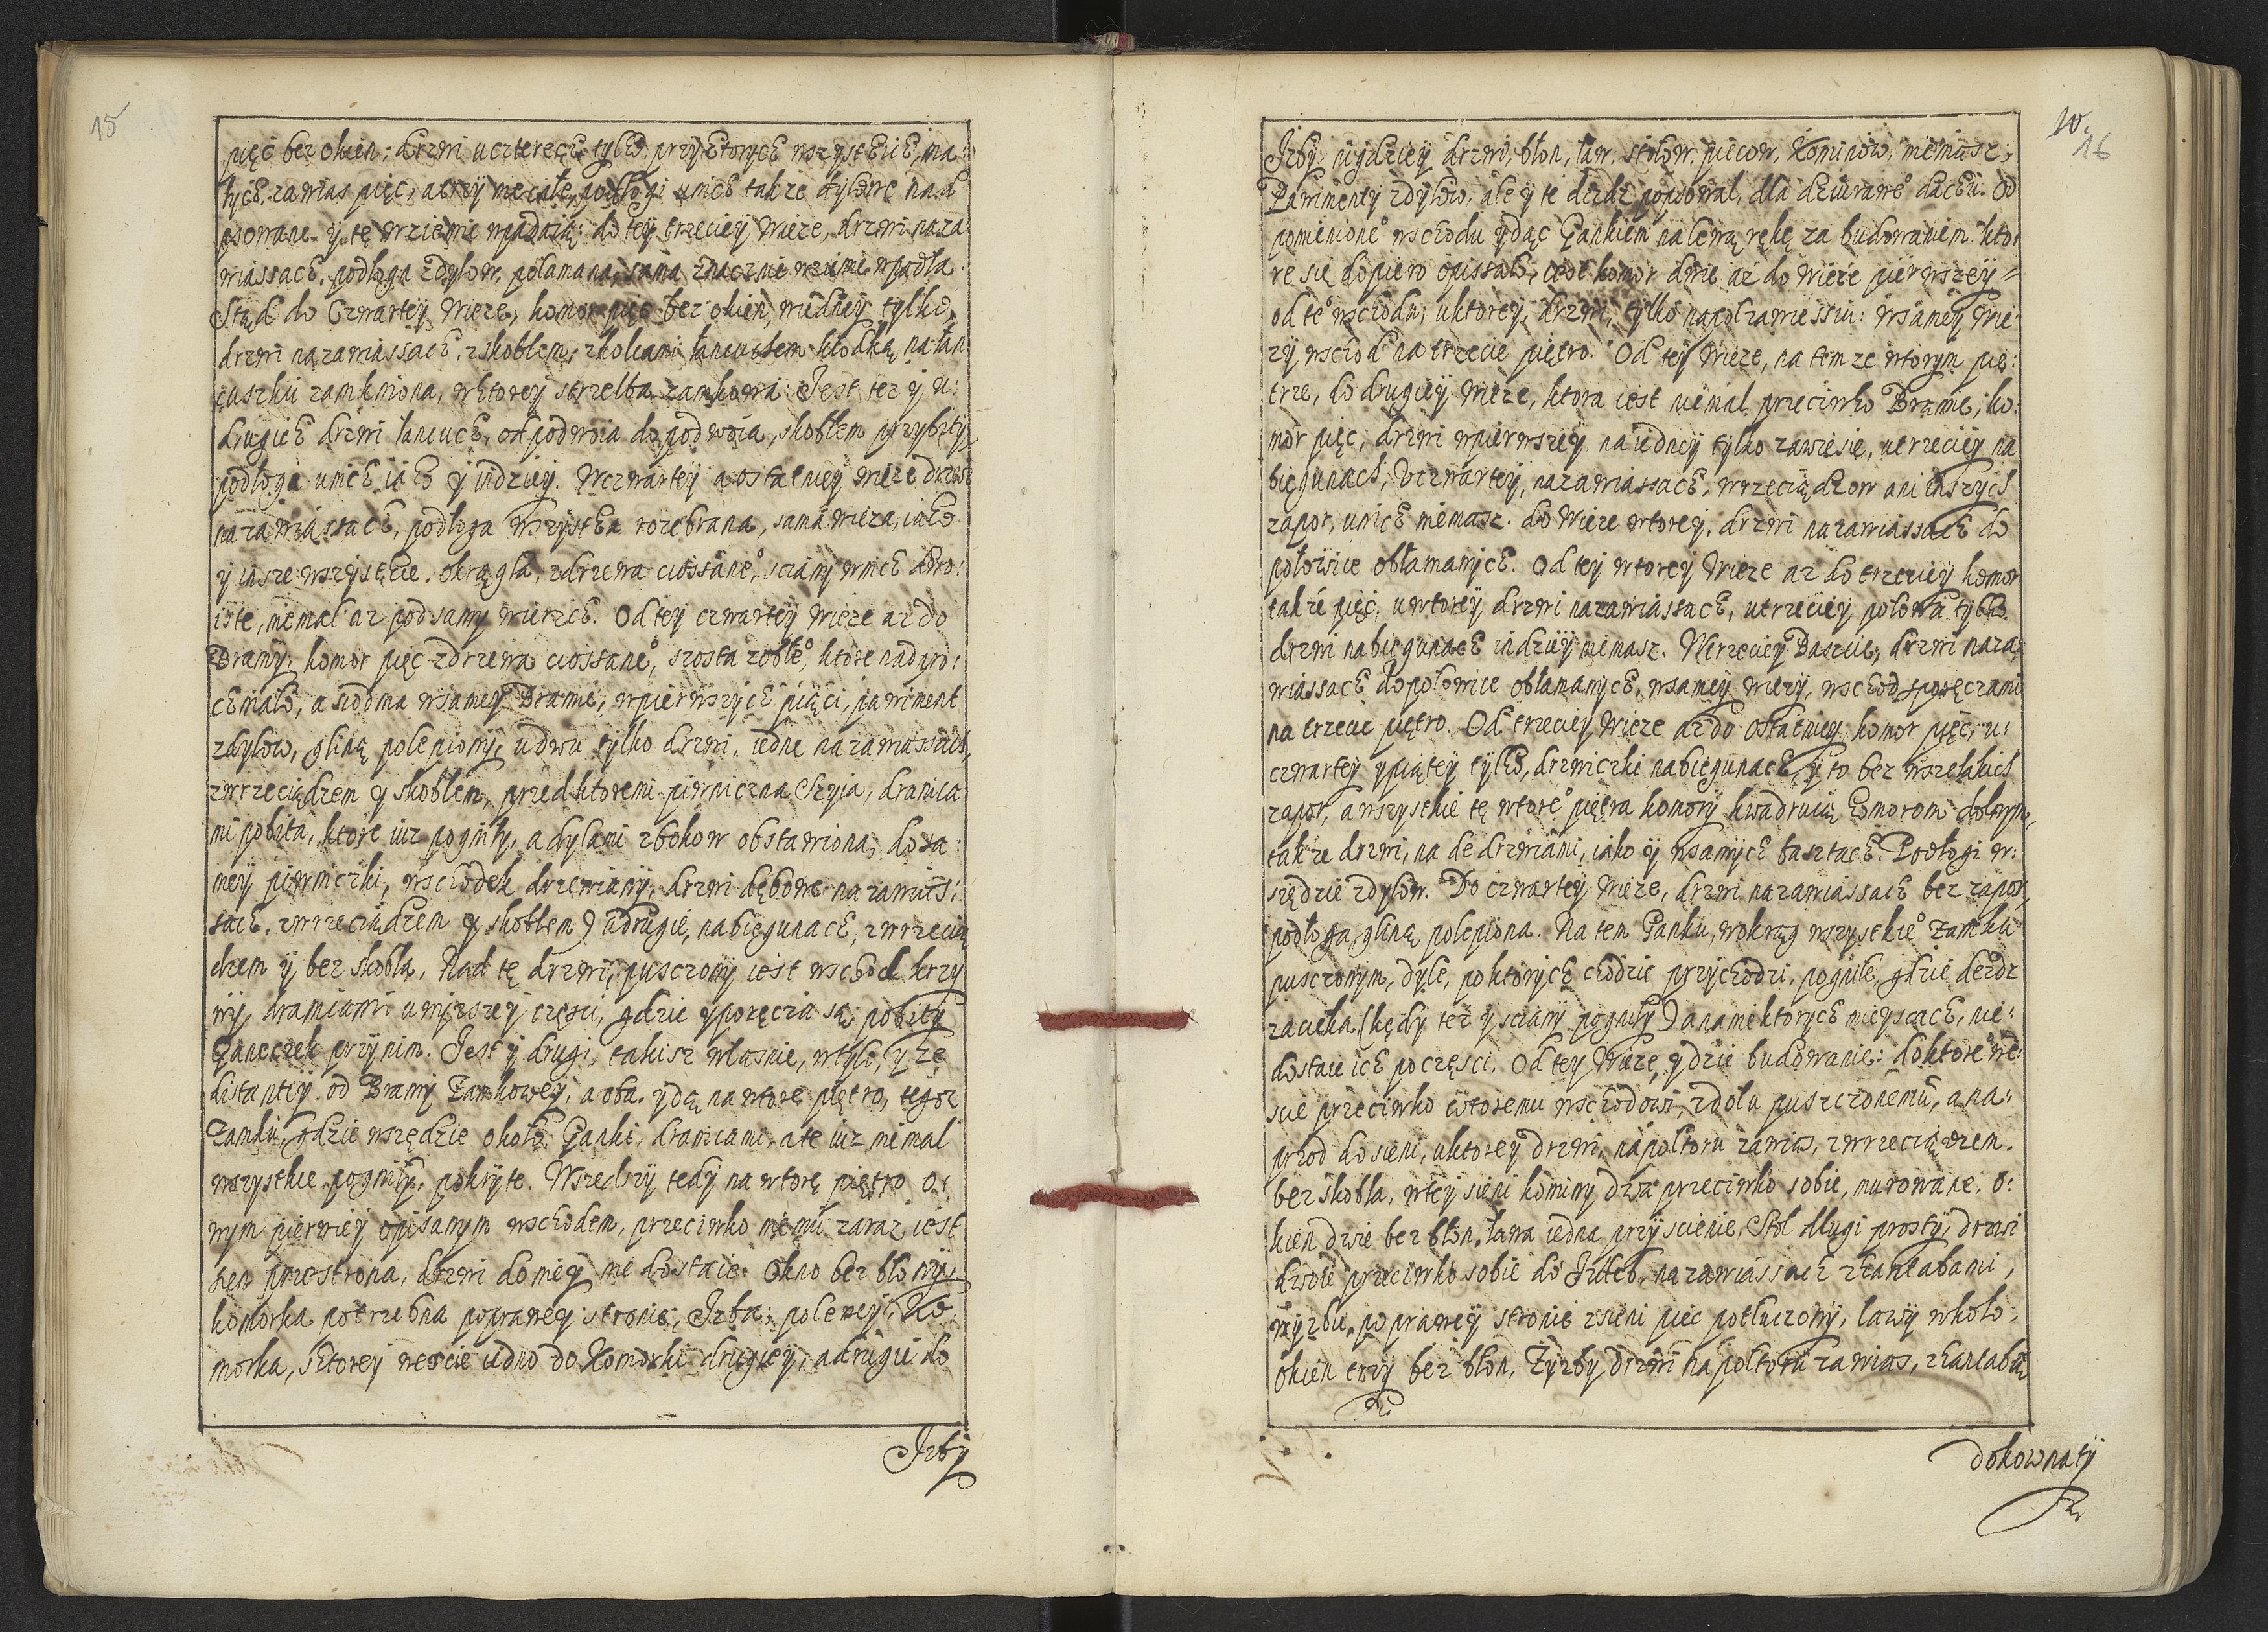 15
pięc bez okien; drzwi u czterech tylko, przy ktorych wszystkich, ma:
łych, zawias pięc, a trzy niecałe, podłogi w nich także dylowe nad
psowane. y tę wziemię wpadaią; do tey trzeciey Wieze, drzwi na za
wiassach, podłoga zdylow, połamana, sama znacznie wziemię wpadła.
Stąd do Czwartey Wieze, komor pięc bez okien, wiedney tylko,
drzwi na zawiassach, z skoblem, z kolcami łancuchem kłodką na łan
cuszku zamkniona, w ktorey strzelba zamkowa Jest tez y u:
drugich drzwi łancuch, od podwoia do podwoia, skoblem przybity,
podłoga w nich iako y indziey. W czwartey a ostatniey wieze drzwi
na zawiassach, podłoga wszystka rozebrana, sama wieza, iako
y insze wszystkie. okrągła, zdrzewa ciossane°, sciany w nich dwo:
iste, niemal az pod samy wierzch. Od tey czwartey Wieze az do
Bramy, komor pięc zdrzewa ciossane°, szosta zoble°, ktore nadpro:
chniało, a siodma w samey Bramie, w pierwszych pięci, pawiment
zdylow, gliną polepiony, u dwu tylko drzwi, iedne na zawiassach,
z wrzeciądzem y skoblem, przed ktoremi piwniczna Szyia, dranica
mi pobita, ktore iuz pogniły, a dylami z bokow obstawiona, do sa:
mey piwniczki, wschodek drzewiany, drzwi dębowe na zawias:
sach, z wrzeciądzem y skoblem) a drugie, na biegunach, z wrzecią
dzem y bez skobla, Nad tę drzwi, pusczony iest wschod krzy
wy, dranicami w wyzszey częsci, gdzie y poręcza są, pobity
Ganeczek przy nim. Jest y drugi, takisz własnie, w tyle, y zę
distantiy. od Bramy Zamkowey, a oba. ydą na wtore piętro, tegosz
Zamku, gdzie wszędzie około Ganki, dranicami, a te iuz niemal
wszystkie pogniły, pokryte. Wszedszy tedy na wtore piętro o:
wym pierwiey opisanym wschodem, przeciwko niemu zaraz iest
sien przestrona, drzwi do niey nie dostaie. Okno bez błony,
komorka potrzebna po prawey stronie, Izba, po lewey, Ko:
morka, s ktorey wescie iedno do Komorki drugiey, a drugie do
Izby
16
Izby nigdziey drzwi, błon, ław, stołow, piecow, Kominow, niemasz,
Pawimenty zdylow, ale y te dezdz popsował, dla dziurawe° dachu. Od
pomienione° wschodu ydąc Gankiem na lewą rękę za budowaniem kto:
re się dopiero opissało, iest komor dwie az do Wieze pierwszey
od te° wschodu, u ktorey, drzwi, tylko na poł zawiessiu: w samey Wie
zy wschod na trzecie piętro. Od tey Wieze, na temze wtorym pię:
trze, do drugiey Wieze, ktora iest niemal przeciwko Bramie, ko:
mor pięc, drzwi w pierwszey na iedney tylko zawiesie, u trzeciey na
biegunach, u czwartey, na zawiassach, wrzeciądzow ani inszych
zapor, u nich niemasz. do Wieze wtorey, drzwi na zawiassach do
połowice obłamanych. Od tey wtorey Wieze az do trzeciey komor
także pięc, u wtorey drzwi na zawiassach, u trzeciey połowa tylko
drzwi na biegunach indziey niemasz. W trzeciey Baszcie, drzwi na za
wiassach do połowice obłamanych, w samey wiezy, wschod z poręczami
na trzecie piętro. Od trzeciey Wieze az do ostatniey, komor pięc, u:
czwartey y piątey tylko, drzwiczki na biegunach, y to bez wszelakich
zapor, a wszystkie tę wtore° piętra komory kwadruią komorom dolnym,
także drzwi, nade drzwiami, iako y w samych basztach. Podłogi w:
szędzie zdylow. Do czwartey Wieze, drzwi na zawiassach bez zapor,
podłoga gliną polepiona. Na tem Ganku, wokrąg wszystkie° Zamku
pusczonym, dyle, po ktorych chodzic przychodzi, pogniłe, gdzie dezdz
zacieka (kędy tez y sciany pogniły) a na niektorych mieyscach, nie:
dostaie ich po częsci. Od tey Wieze, ydzie budowanie: do ktore° we:
scie przeciwko wtoremu wschodowi, zdołu pusczonemu, a na:
przod do sieni, u ktorey drzwi, na połtoru zawias, z wrzeciądzem.
bez skobla, w tey sieni kominy dwa przeciwko sobie, murowane, o:
kien dwie bez błon, ława iedna przy scienie, Stoł długi prosty, drzwi
dwoie przeciwko sobie do Izdeb, na zawiassach z hantabami,
w Izbie, po prawey stronie z sieni piec potłuczony, ławy wkoło,
okien trzy bez błon, Z Izby drzwi na połtoru zawias, z hantabą
do kownaty